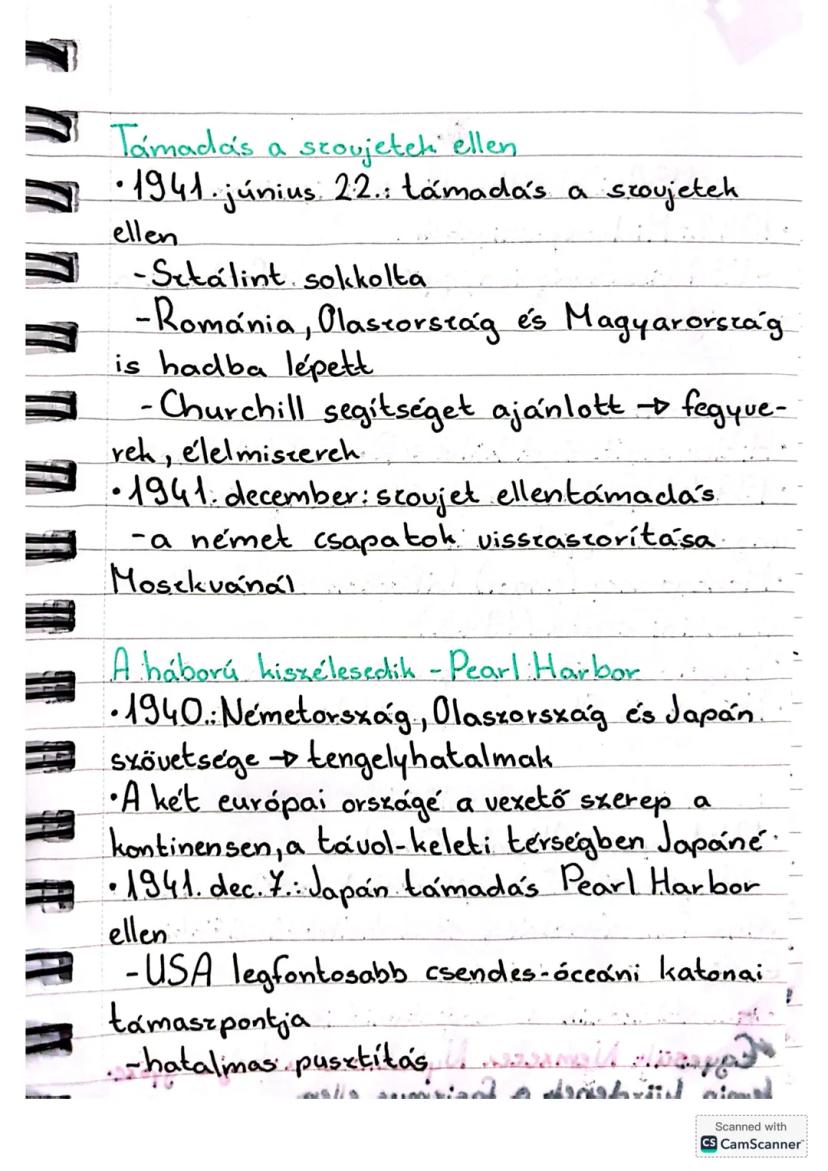 Támadás a szovjetek ellen
•1941. június 22.: támadás a szovjetek
ellen
-Sztálint sokkolta
-Románia, Olaszország és Magyarország
is hadba lépett
-Churchill segítséget ajánlott → fegyve-
rek, élelmiszerek
•1941. december: szovjet ellentámadás
-a német csapatok visszaszorítása
Moszkvánál
A háború kiszélesedik - Pearl Harbor
•1940.: Németország, Olaszország és Japán
szövetsége → tengelyhatalmak
•A két európai országé a vezető szerep a
kontinensen, a távol-keleti térségben Japáné
•1941. dec. 7.: Japán támadás Pearl Harbor
ellen
-USA legfontosabb csendes-óceáni katonai
támaszpontja
-hatalmas pusztítás
Scanned with
CS CamScanner